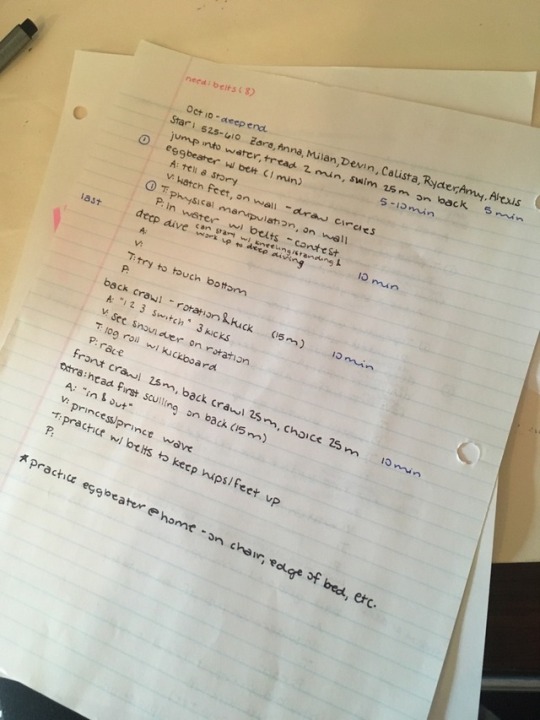 need: belts (8)
Oct 10 - deep end
Star 1 525-610 Zara, Anna, Milan, Devin, Calista, Ryder, Amy, Alexis
① jump into water, tread 2 min, swim 25m on back 5 min
eggbeater w/ belt (1 min) 5-10min
A: tell a story
V: watch feet, on wall - draw circles
① T: physical manipulation, on wall
P: in water w/ belts - contest
last deep dive can start w/ kneeling/standing & 10 min
work up to deep diving
A:
V:
T: try to touch bottom
P:
back crawl - rotation & tuck (15m) 10 min
A: "1 2 3 switch" 3 kicks
V: see shoulder on rotation
T: log roll w/ kickboard
P: race
front crawl 25m, back crawl 25m, choice 25m 10 min
extra: head first sculling on back (15m)
A: "in & out"
V: princess/prince wave
T: practice w/ belts to keep hips/feet up
P:
*practice eggbeater @ home - on chair, edge of bed, etc.